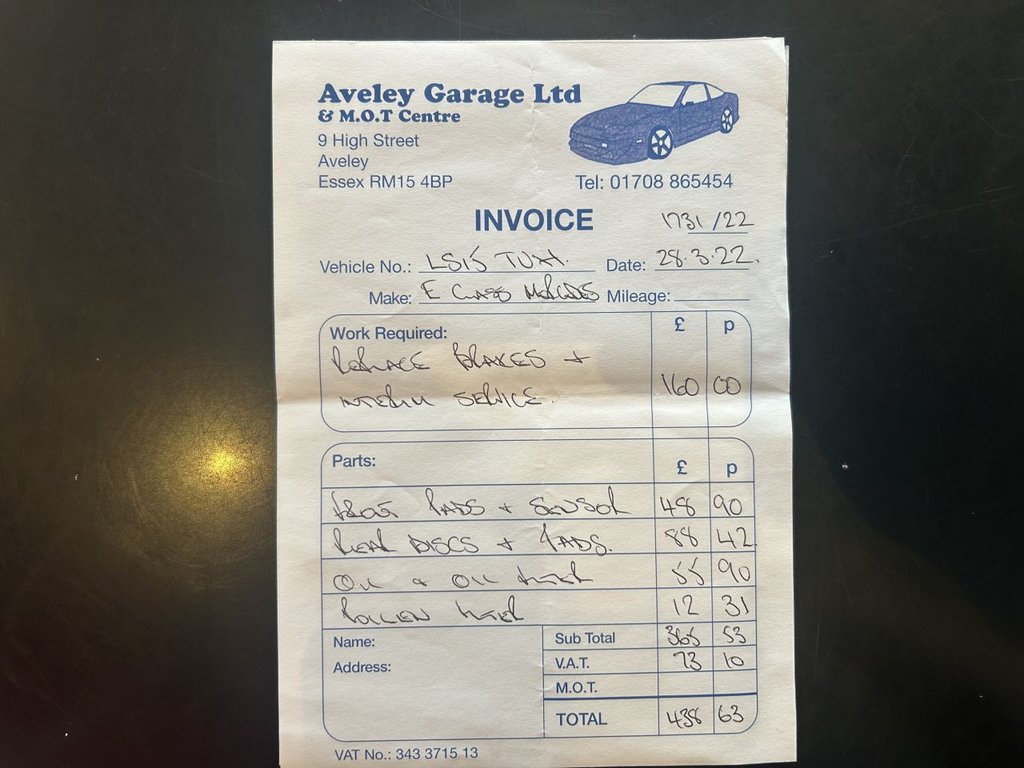 Aveley Garage Ltd
& M.O.T Centre
9 High Street
Aveley
Essex RM15 4BP
Tel: 01708 865454
INVOICE 1731/22
Vehicle No.: LS15 TUH. Date: 28.3.22.
Make: E CLASS MERCEDES Mileage:
Work Required: £ p
REPLACE BRAKES +
INTERIM SERVICE. 160 00
Parts: £ p
FRONT PADS + SENSOR 48 90
REAR DISCS + PADS. 88 42
OIL + OIL FILTER 55 90
POLLEN FILTER 12 31
Name: Sub Total 365 53
Address: V.A.T. 73 10
M.O.T.
TOTAL 438 63
VAT No.: 343 3715 13